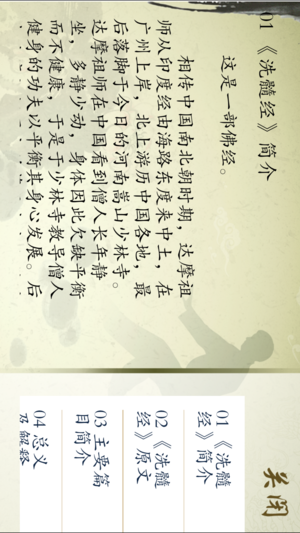 01 《洗髓经》简介
这是一部佛经。
相传中国南北朝时期，达摩祖
师从印度经由海路东度来中土，在
广州上岸，北上游历中国各地，最
后落脚于今日的河南嵩山少林寺。
达摩祖师在中国看到僧人长年静
坐，多静少动，身体因此欠缺平衡
而不健康，于是于少林寺教导僧人
健身的功夫以平衡其身心发展。后
关闭
01 《洗髓
经》简介
02 《洗髓
经》原文
03 主要篇
目简介
04 总义
及解释